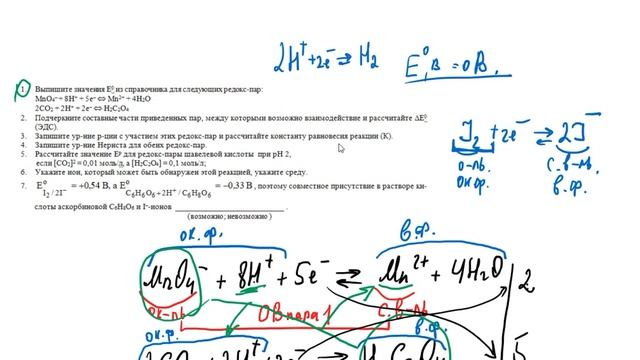 2H⁺+2e⁻ ⇌ H₂
E⁰, В = 0 В.
1. Выпишите значения E⁰ из справочника для следующих редокс-пар:
MnO₄⁻ + 8H⁺ + 5e⁻ ⇔ Mn²⁺ + 4H₂O
2CO₂ + 2H⁺ + 2e⁻ ⇔ H₂C₂O₄
2. Подчеркните составные части приведенных пар, между которыми возможно взаимодействие и рассчитайте ΔE⁰
(ЭДС).
3. Запишите ур-ние р-ции с участием этих редокс-пар и рассчитайте константу равновесия реакции (K).
4. Запишите ур-ние Нернста для обеих редокс-пар.
5. Рассчитайте значение E⁰ для редокс-пары щавелевой кислоты при pH 2,
если [CO₂]² = 0,01 моль/л, а [H₂C₂O₄] = 0,1 моль/л;
6. Укажите ион, который может быть обнаружен этой реакцией, укажите среду.
7. E⁰ I₂ / 2I⁻ = +0,54 В, а E⁰ C₆H₆O₆ + 2H⁺ / C₆H₈O₆ = −0,33 В , поэтому совместное присутствие в растворе ки-
слоты аскорбиновой C₆H₈O₆ и I⁻-ионов ____________ .
(возможно; невозможно)
I₂ +2e⁻ ⇌ 2I⁻
о-ль. с. в-ль.
ок.ф. в.ф.
ок.ф. в.ф.
MnO₄⁻ + 8H⁺ + 5e⁻ ⇌ Mn²⁺ + 4H₂O | 2
ок-ль ОВ пара 1 с.в-ль
ок.ф. в.ф.
5